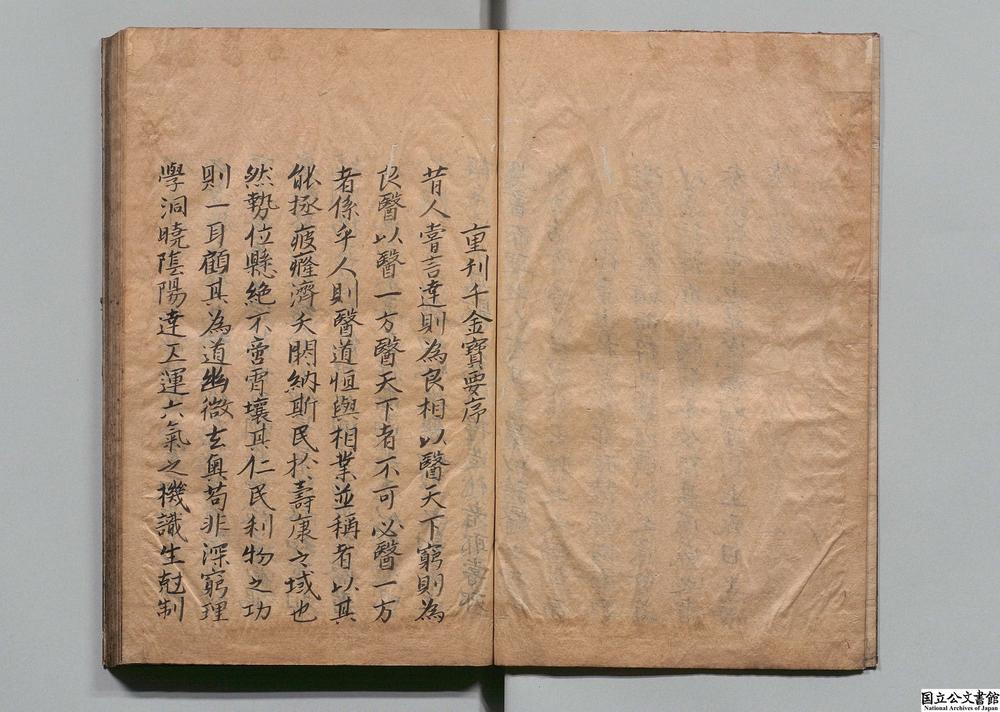 重刊千金寶要序
昔人嘗言達則為良相以醫天下窮則為
良醫以醫一方醫天下者不可必醫一方
者係乎人則醫道恒與相業並稱者以其
能拯疲癃濟夭閼納斯民於壽康之域也
然勢位懸絶不啻霄壤其仁民利物之功
則一耳顧其為道幽微玄奧苟非深窮理
學洞曉陰陽達五運六氣之機識生尅制
国立公文書館
National Archives of Japan